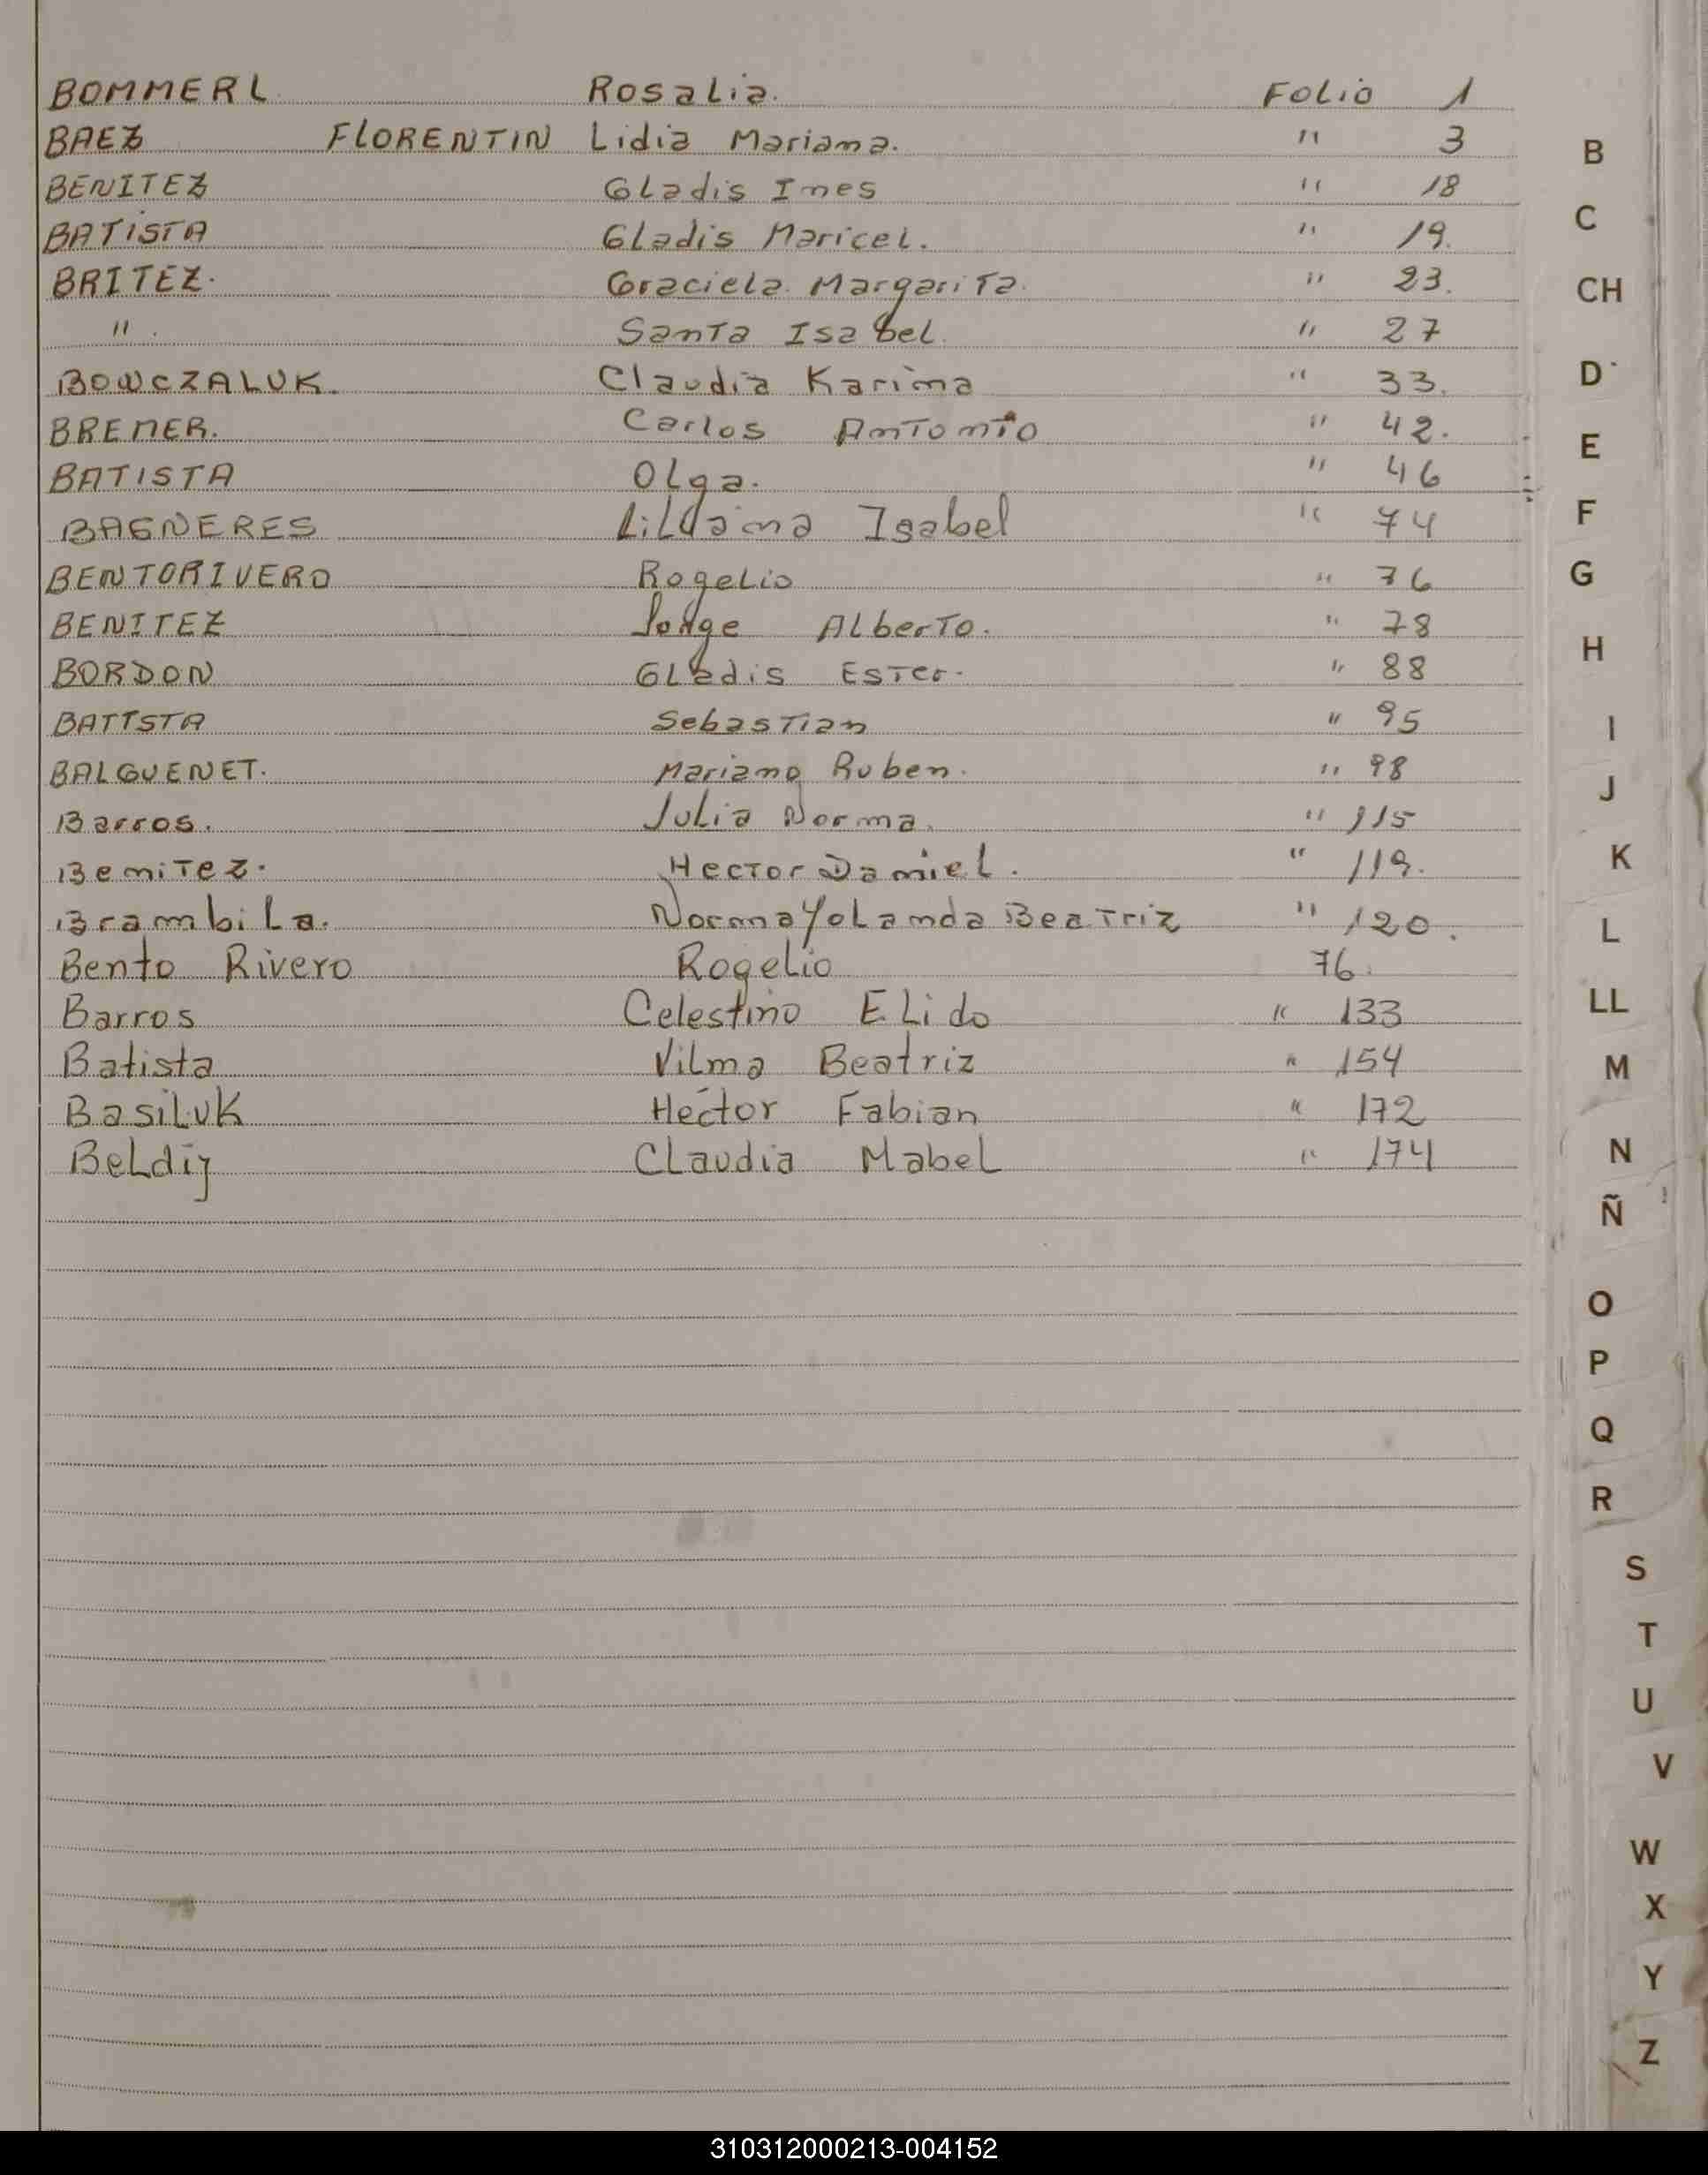 BOMMERL Rosalia. Folio 1
BAEZ FLORENTIN Lidia Mariana. " 3
BENITEZ Gladis Ines " 18
BATISTA Gladis Maricel. " 19.
BRITEZ. Graciela Margarita. " 23.
" . Santa Isabel. " 27
BOWCZALUK. Claudia Karina " 33.
BREMER. Carlos Antonio " 42.
BATISTA Olga. " 46
BAGNERES Isabel " 74
BENTORIVERO Rogelio " 76
BENITEZ Jorge Alberto. " 78
BORDON Gladis Ester. " 88
BATISTA Sebastian " 95
BALGUENET. Mariano Ruben. " 98
Barros. Julia Norma. " 115
Benitez. Hector Daniel. " 119.
Brambila. Norma Yolanda Beatriz " 120.
Bento Rivero Rogelio 76.
Barros Celestino Elido " 133
Batista Vilma Beatriz " 154
Basiluk Héctor Fabian " 172
Beldij Claudia Mabel " 174
B
C
CH
D
E
F
G
H
I
J
K
L
LL
M
N
Ñ
O
P
Q
R
S
T
U
V
W
X
Y
Z
310312000213-004152